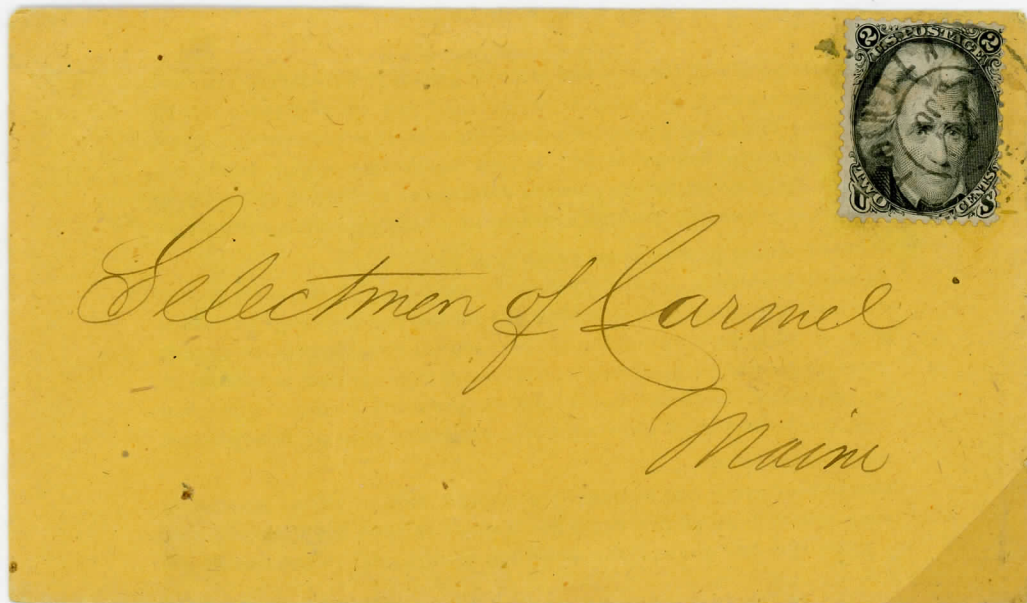 2 U.S. POSTAGE 2
U TWO CENTS S
Selectmen of Carmel
Maine